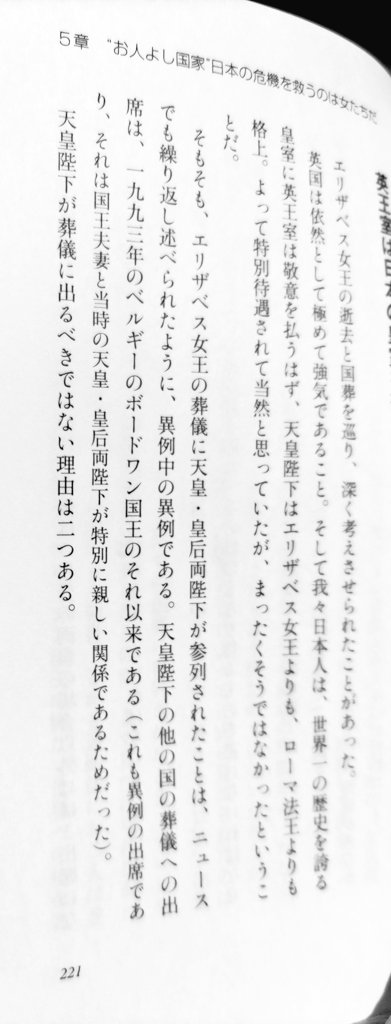 5章 “お人よし国家”日本の危機を救うのは女たちだ
エリザベス女王の逝去と国葬を巡り、深く考えさせられたことがあった。
英国は依然として極めて強気であること。そして我々日本人は、世界一の歴史を誇る
皇室に英王室は敬意を払うはず、天皇陛下はエリザベス女王よりも、ローマ法王よりも
格上。よって特別待遇されて当然と思っていたが、まったくそうではなかったというこ
とだ。
そもそも、エリザベス女王の葬儀に天皇・皇后両陛下が参列されたことは、ニュース
でも繰り返し述べられたように、異例中の異例である。天皇陛下の他の国の葬儀への出
席は、一九九三年のベルギーのボードワン国王のそれ以来である（これも異例の出席であ
り、それは国王夫妻と当時の天皇・皇后両陛下が特別に親しい関係であるためだった）。
天皇陛下が葬儀に出るべきではない理由は二つある。
221